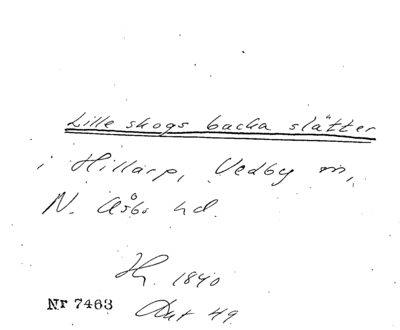 Lille skogs backa slätter
i Hillarp, Vedby sn,
N. Åsbo hd.
Hy. 1840
Nr 7463 Dat 49